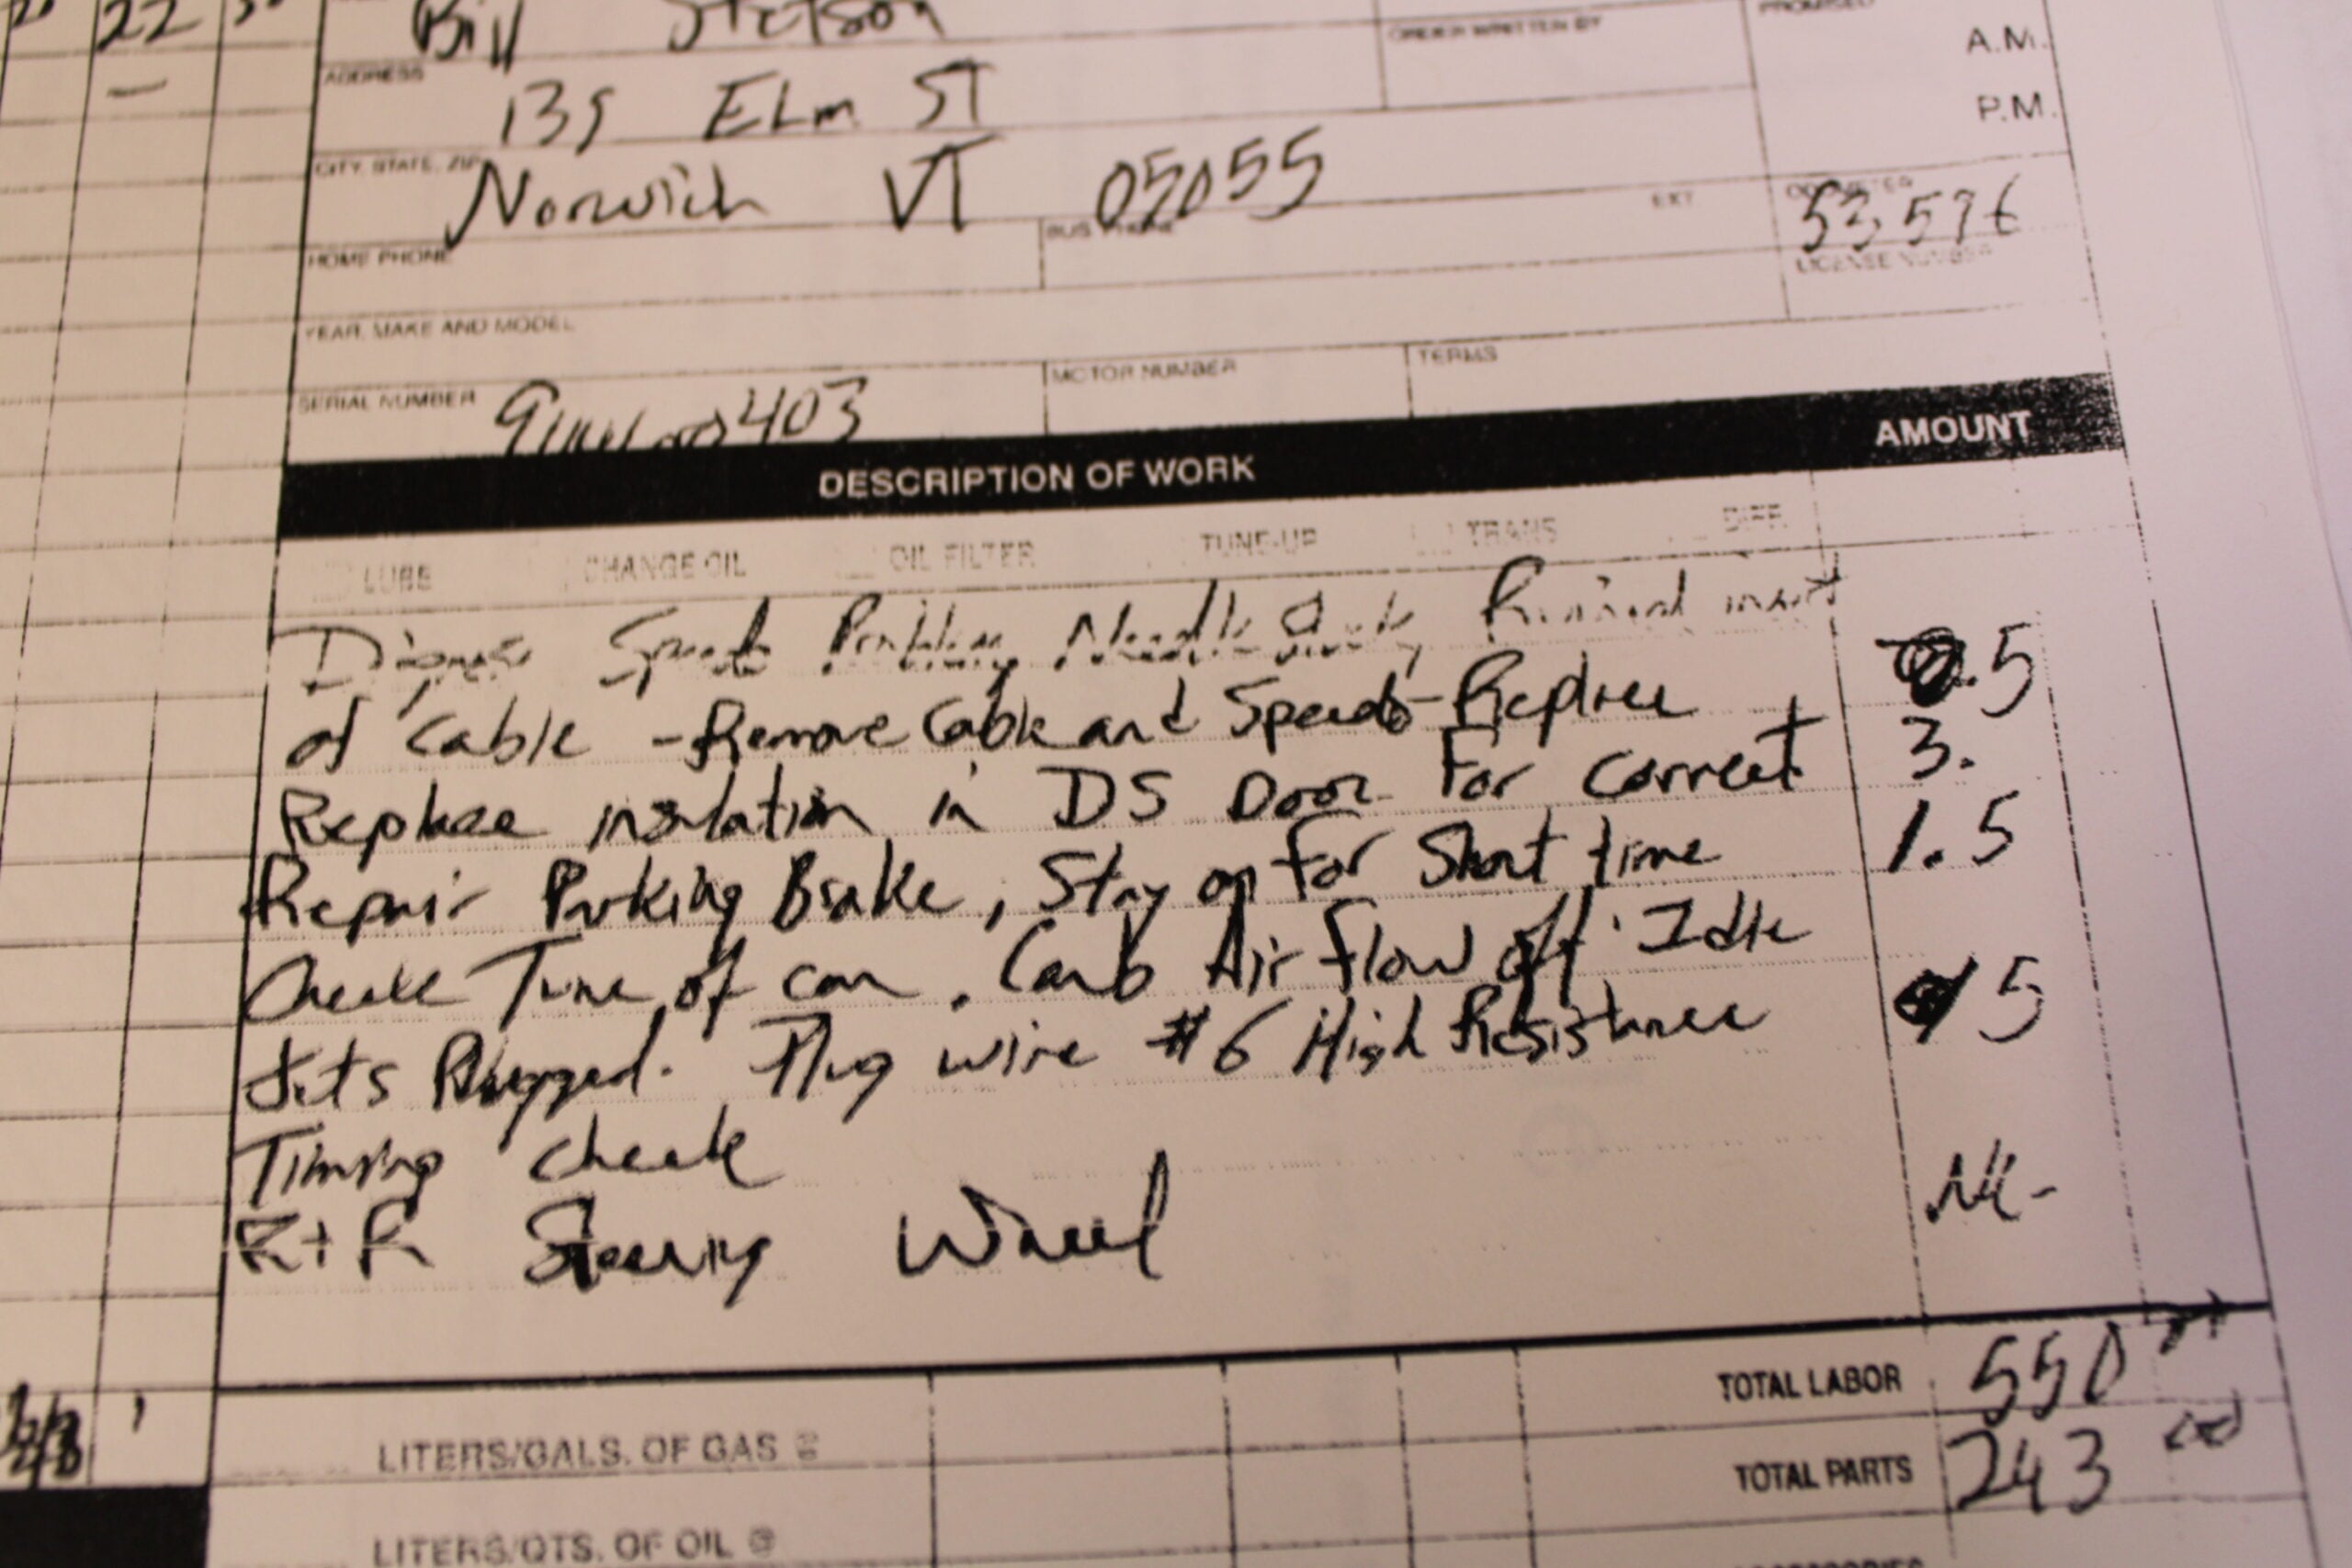 22
Bill Stetson
ORDER WRITTEN BY
PROMISED
A.M.
ADDRESS
135 ELm ST
P.M.
CITY, STATE, ZIP
Norwich VT 05055
ODOMETER
53,576
HOME PHONE
BUS PHONE
EXT
LICENSE NUMBER
YEAR, MAKE AND MODEL
SERIAL NUMBER
403
MOTOR NUMBER
TERMS
DESCRIPTION OF WORK
AMOUNT
LUBE CHANGE OIL OIL FILTER TUNE-UP TRANS DIFF.
Speedo Problem, Needle
of Cable - Remove Cable and Speedo - Replace .5
Replace insulation in DS Door For Correct 3.
Repair Parking Brake, Stay on For Short time 1.5
Check Tune of car. Carb Air Flow off Idle
Jets Plugged. Plug wire #6 High Resistance 5
Timing check
R+R Steering Wheel
TOTAL LABOR 550
LITERS/GALS. OF GAS @
TOTAL PARTS 243
LITERS/QTS. OF OIL @